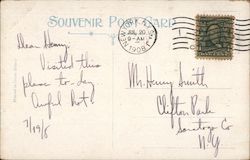 SOUVENIR POST CARD
NEW YORK, N.Y.
JUL 20
9-AM
1908
Dear Henry,
Visited this
place to-day
Awful hot.
7/19/8
Mr. Henry Smith
Clifton Park
Saratoga Co
N.Y.